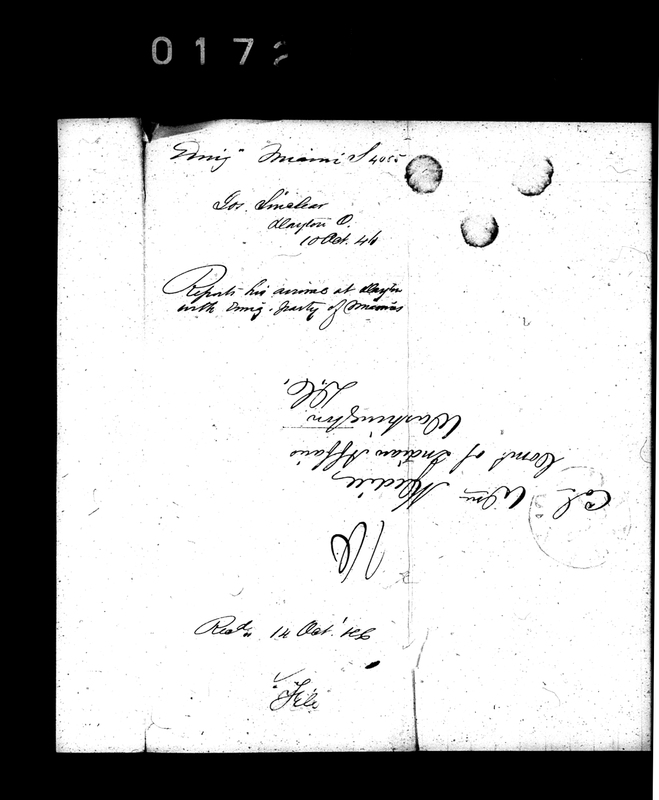 0172
Emigⁿ Miami S 4055
Jos. Sinclear
Dayton O.
10 Oct. 46
Reports his arrival at Dayton
with Emig. party of Miamies
Col. Wm Medill
Comr of Indian Affairs
Washington
D,C,
10
Recd 14 Oct. '46
File